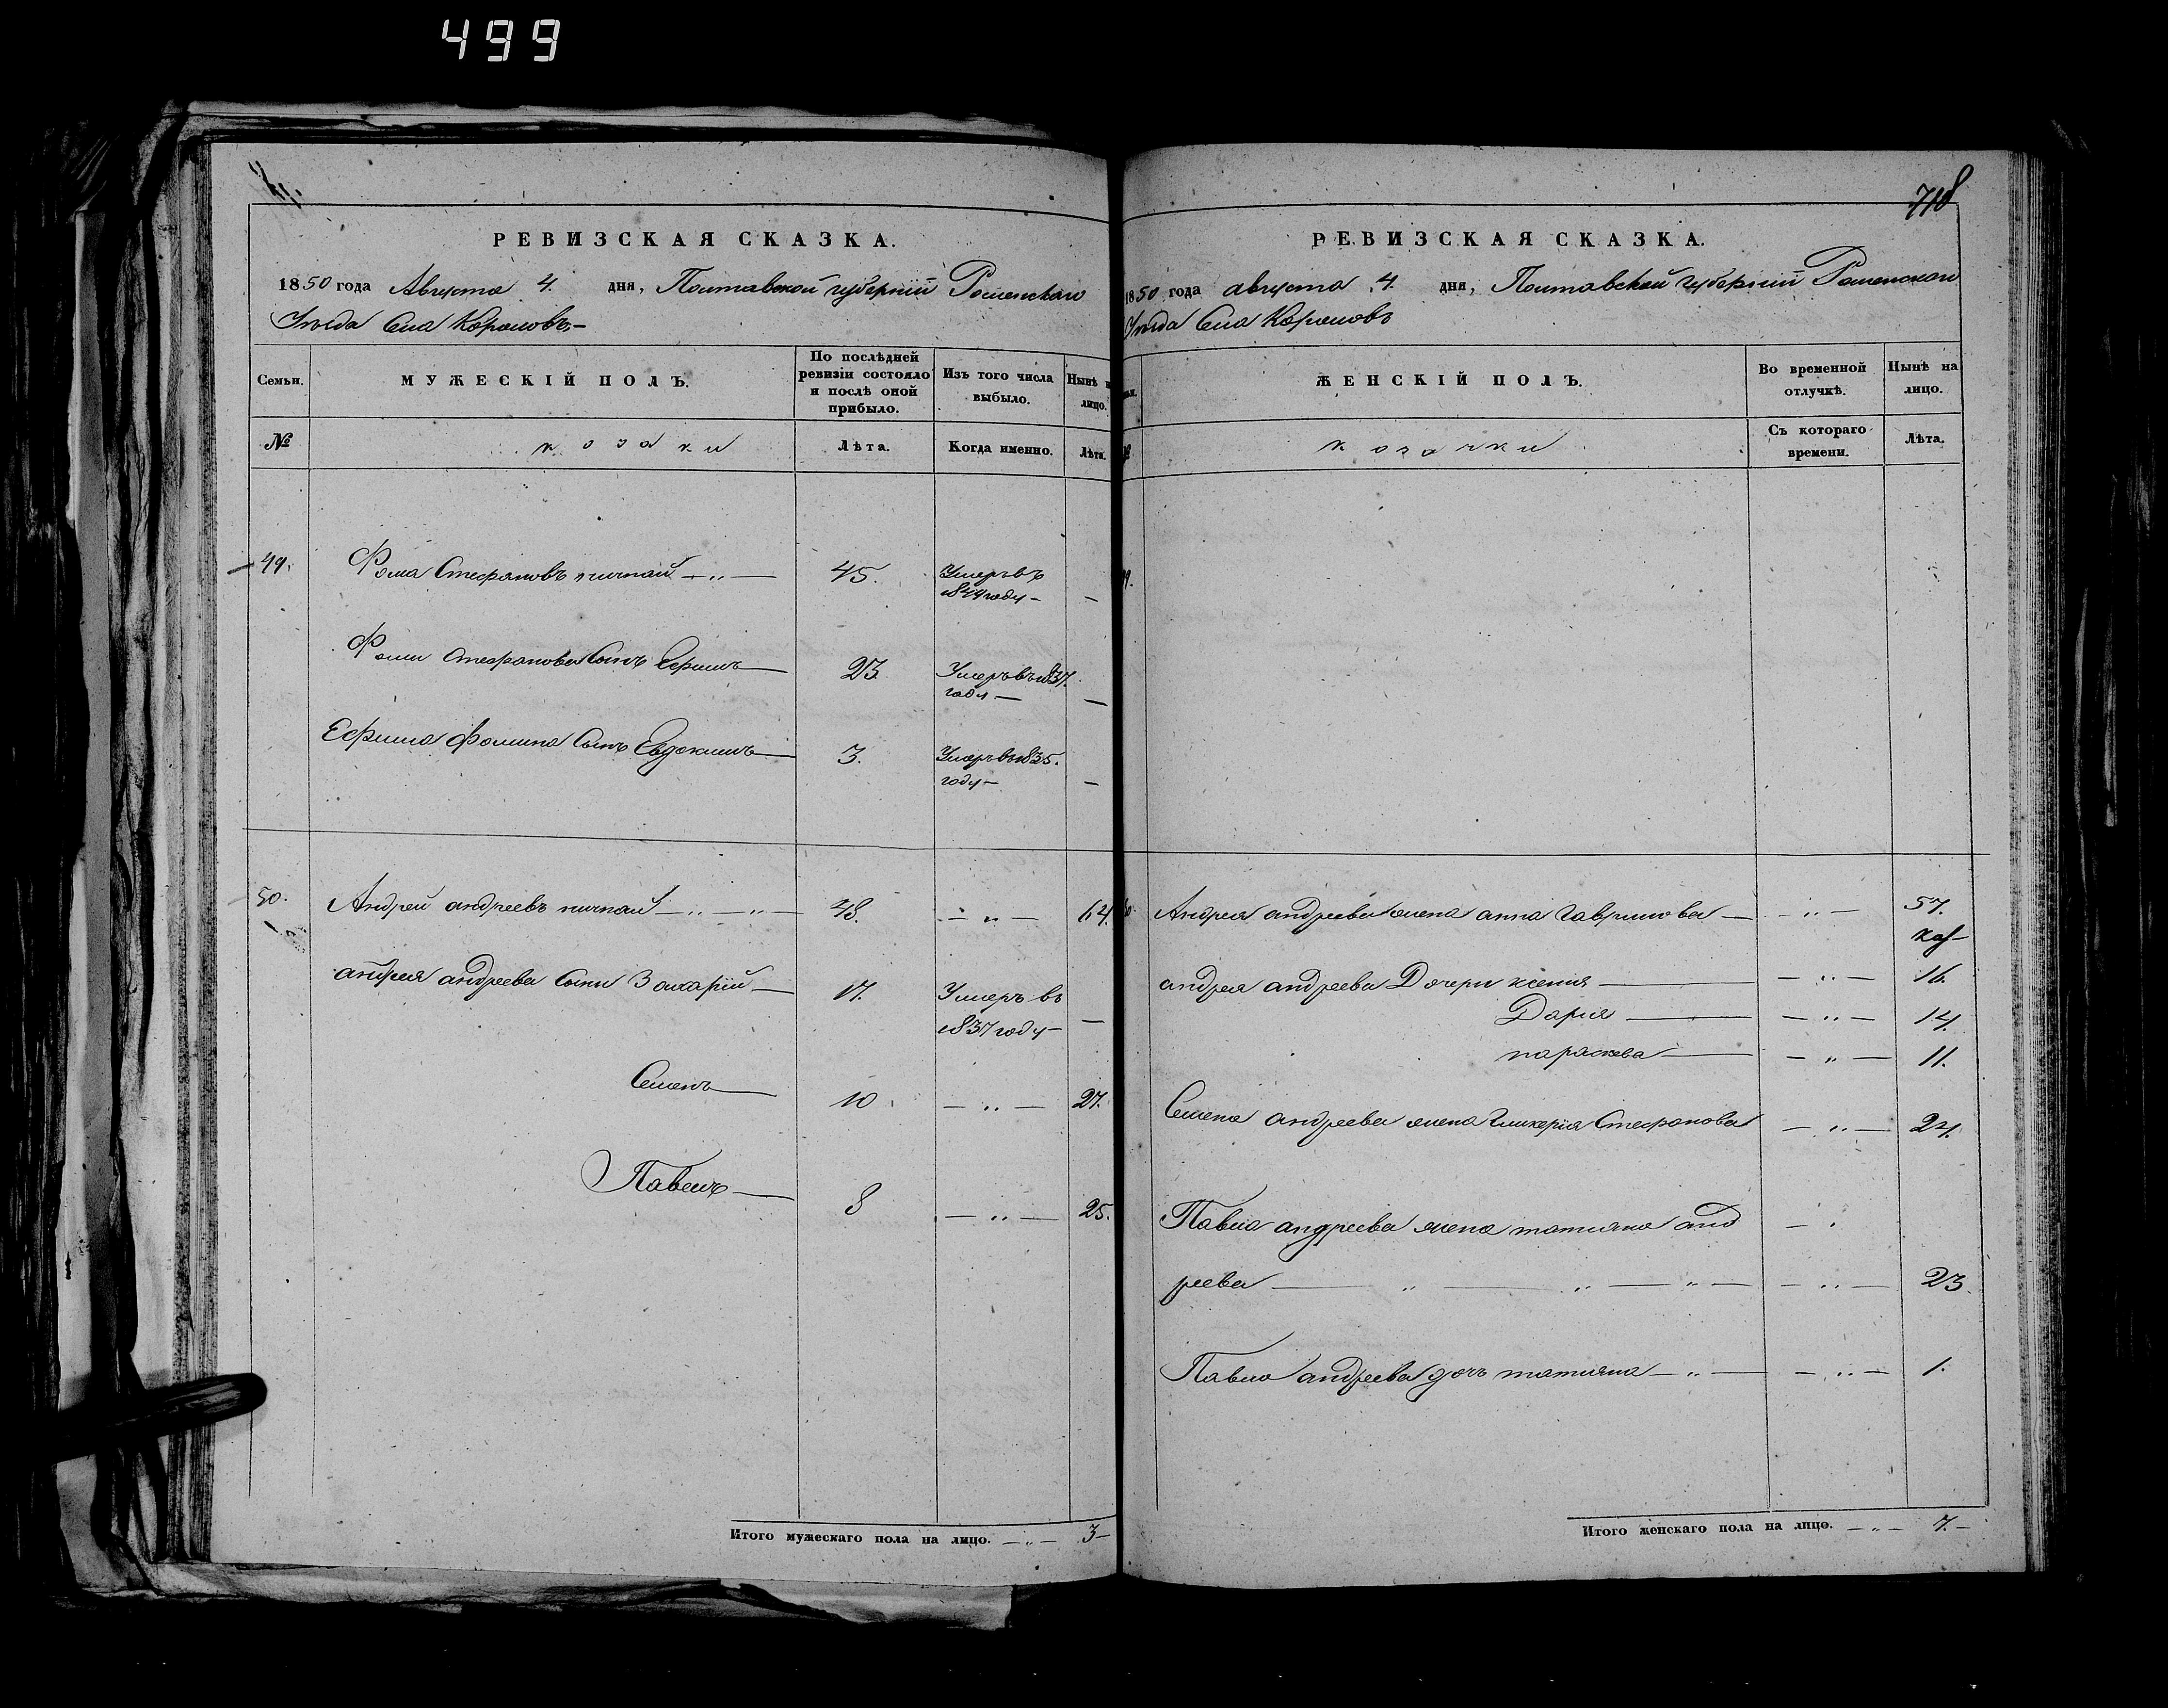 499
РЕВИЗСКАЯ СКАЗКА.
1850 года Августа 4. дня, Полтавской губернии Роменскаго
Уѣзда Села Корововъ
Семьи. МУЖЕСКІЙ ПОЛЪ. По послѣдней ревизіи состояло и послѣ оной прибыло. Изъ того числа выбыло. Нынѣ на лицо.
№ козаки Лѣта. Когда именно. Лѣта.
49. Фома Стефановъ 45. Умеръ въ
1844 году —
Фомы Стефанова Сынъ Ефимъ 23 Умеръ въ 1837.
году —
Ефима Фомина Сынъ Евдокимъ 3. Умеръ въ 1835.
году —
50. Андрей андреевъ 48. — „ — 64.
андрея андреева Сыны Захарій 17. Умеръ въ
1837 году —
Семенъ 10. — „ — 27.
Павелъ 8 — „ — 25.
Итого мужескаго пола на лицо. — „ — 3 —
718
РЕВИЗСКАЯ СКАЗКА.
1850 года августа 4. дня, Полтавской губерніи Роменскаго
Уѣзда Села
ЖЕНСКІЙ ПОЛЪ. Во временной отлучкѣ. Нынѣ на лицо.
козачки Съ котораго времени. Лѣта.
Андрея андреева жена анна Гаврилова — „ — 57.
андрея андреева Дочери ксенія — „ — 16.
Дарія — „ — 14.
параскева — „ — 11.
Семена андреева жена Гликерія Стефанова — „ — 24.
Павла андреева жена татияна анд
реева — „ — 23.
Павла андреева дочь татияна — „ — 1.
Итого женскаго пола на лицо. — „ — 7. —